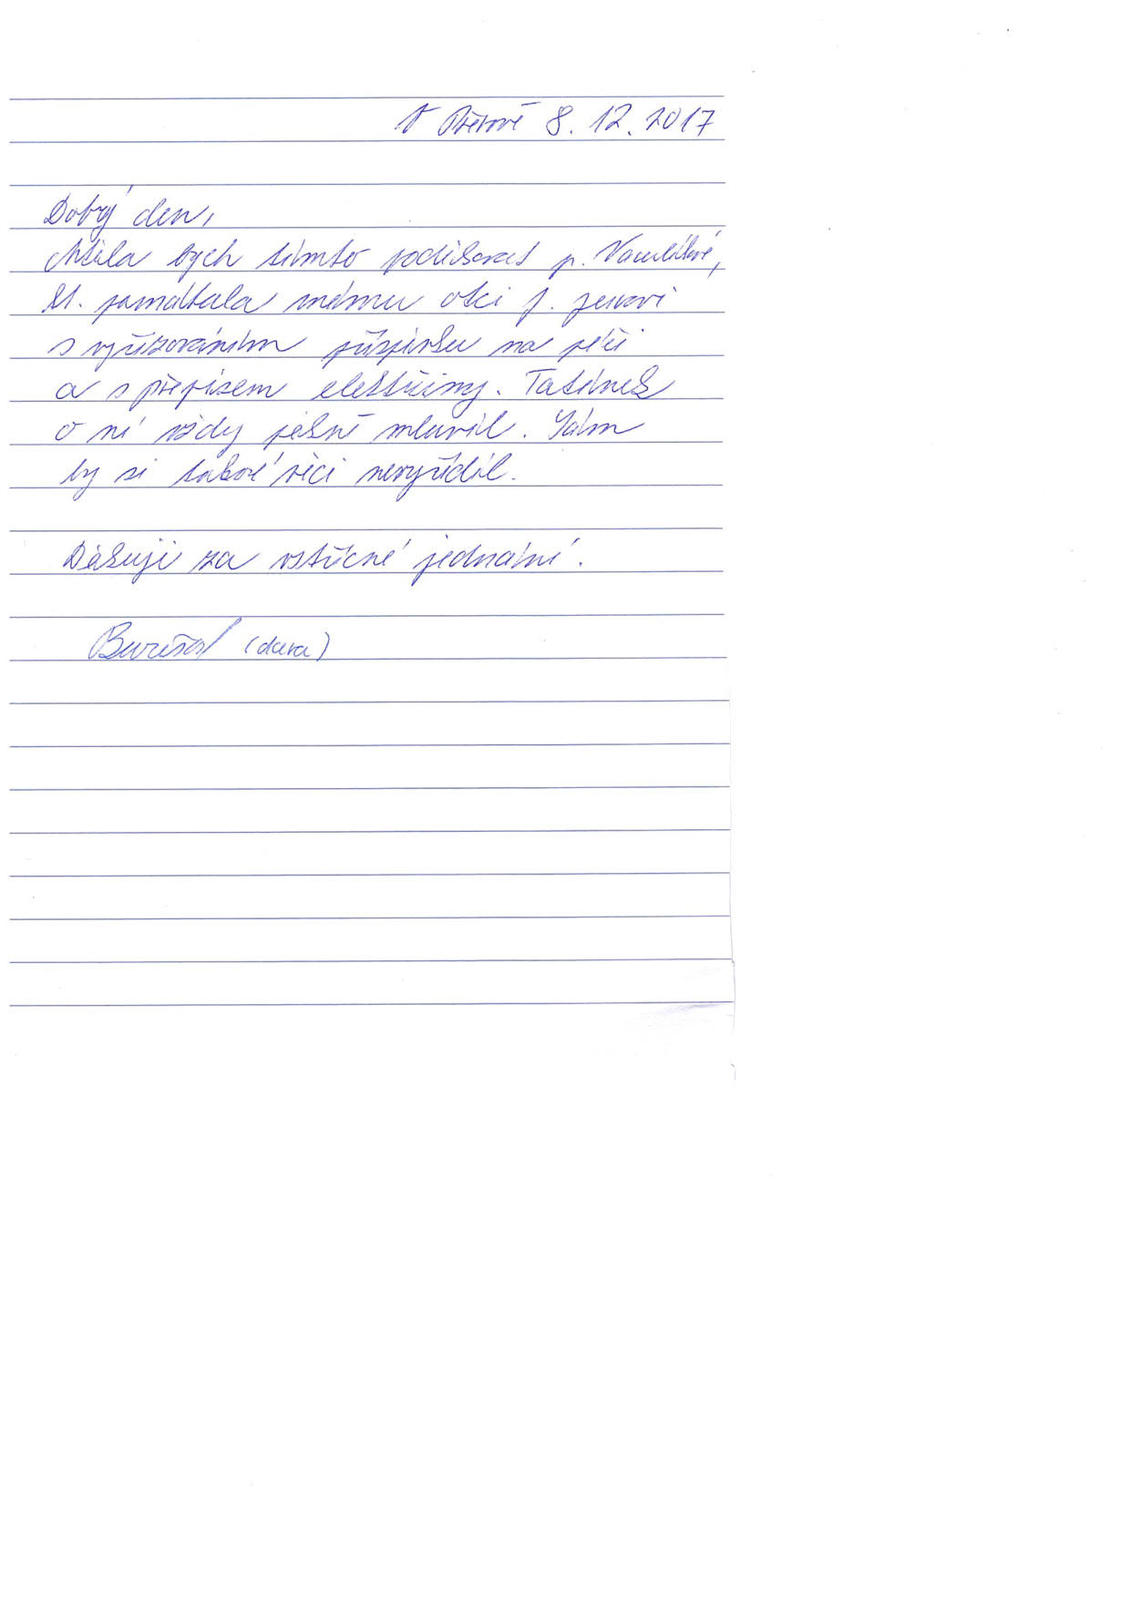 V Přerově 8. 12. 2017
Dobrý den,
chtěla bych tímto poděkovat p. Vaculíkové,
kt. pomáhala mému otci p.
s vyřizováním příspěvku na péči
a s přepisem elektřiny. Tatínek
o ní vždy pěkně mluvil. Sám
by si takové věci nevyřídil.
Děkuji za vstřícné jednání.
(dcera)